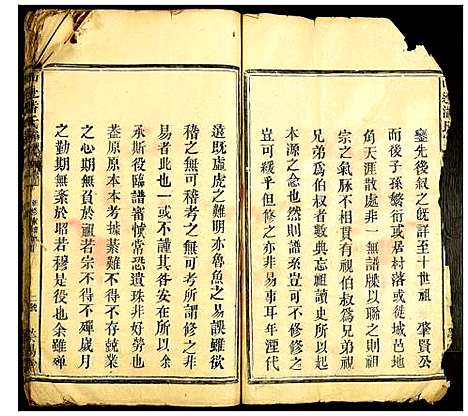 鑒先後敘之旣詳至十世祖 肇賢公
而後子孫繁衍或居村落或徙城邑地
角天涯散處非一無譜牒以聯之則
宗之氣脉不相貫有視伯叔爲兄弟視
兄弟爲伯叔者數典忘祖讀史所以凜
本源之念也然則譜
豈可緩乎但修之亦非易事耳年湮代
遠旣虛虎之難明亦魯魚之易誤雖欲
稽之無可稽考之無可考所謂修之非
易者此也一或不謹其咎安在所以余
承斯役臨譜審愼常恐遺珠非好勞也
蓋原原本本考據綦難不得不存兢業
之無負於 祖若宗不得不殫歲月
之勤期無紊於昭若穆是役也余雖殫
二號